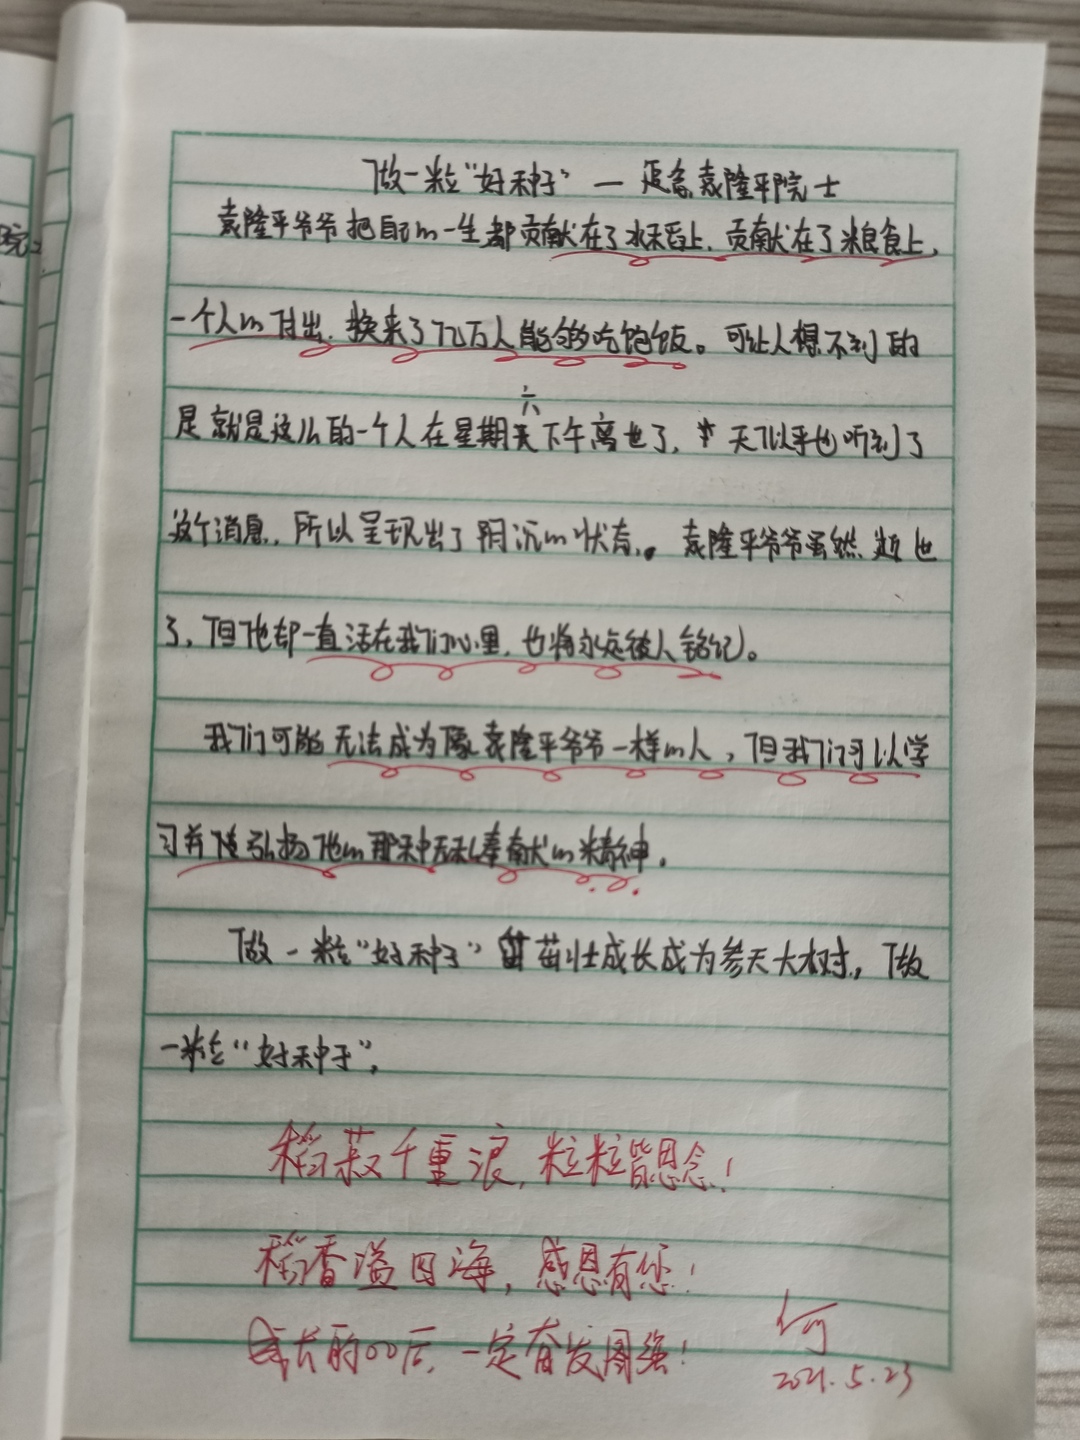 做一粒“好种子”—追念袁隆平院士
袁隆平爷爷把自己的一生都贡献在了水稻上，贡献在了粮食上，
一个人的付出，换来了亿万人能够吃饱饭。可让人想不到的
六
是就是这么的一个人在星期天下午离世了，天似乎也听到了
这个消息，所以呈现出了阴沉的状态。袁隆平爷爷虽然逝世
了，但他却一直活在我们心里，也将永远被人铭记。
我们可能无法成为像袁隆平爷爷一样的人，但我们可以学
习并弘扬他的那种无私奉献的精神。
做一粒“好种子”茁壮成长成为参天大树，做
一粒“好种子”。
稻菽千重浪，粒粒皆恩念！
稻香溢四海，感恩有您！
成长的00后，一定奋发图强！
何
2021.5.23